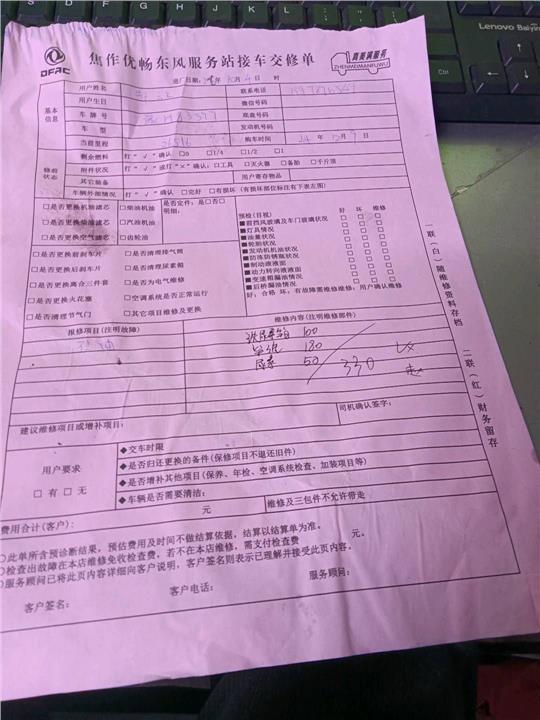 DFAC
焦作优畅东风服务站接车交修单
真美满服务
ZHENMEIMANFUWU
Lenovo
进厂日期: 年 月 4 日 时
基本信息
用户姓名
联系电话
用户生日
微信号码
车牌号
底盘号
车型
发动机号码
当前里程
购车时间 24 年 12 月 9 日
修前状态
剩余燃料 打“√”确认 □0 □1/4 □1/2 □1
附件状况 打“√”或打“×”确认:□工具 □灭火器 □备胎 □千斤顶
其它装备
用户寄存物品
车辆外部情况 打“√”确认 □完好 □有损坏(有损坏部位标注有下表左图)
□是否更换机油滤芯 □柴油机油
□是否更换柴油滤芯 □汽油机油
□是否更换空气滤芯 □齿轮油
是否定件:是□否□
明细:
□是否更换前刹车片 □是否清理排气筒
□是否更换后刹车片 □是否清理尿素箱
□是否更换离合三件套 □是否为电气维修
□是否更换火花塞 □空调系统是否正常运行
□是否清理节气门 □其它项目维修及更换
预检(目视) 好 坏 维修
■前挡风玻璃及车门玻璃状况 □ □ □
■灯具情况 □ □ □
■油量状况 □ □ □
■轮胎状况 □ □ □
■发动机机油状况 □ □ □
■防冻防锈瓶状况 □ □ □
■制动液液面 □ □ □
■动力转向液液面 □ □ □
■变速箱漏油情况 □ □ □
■后桥漏油情况 □ □ □
好:合格 坏:有故障需维修维修:用户确认维修
报修项目(注明故障)
维修内容(注明维修部件)
洗尿素箱 100
180
尿素 50
330
司机确认签字:
建议维修项目或增补项目:
用户要求
□有 □无
◆交车时限
◆是否归还更换的备件(保修项目不退还旧件)
◆是否增补其他项目(保养、年检、空调系统检查、加装项目等)
◆车辆是否需要清洁:
维修及三包件不允许带走
费用合计(客户): 元
○此单所含预诊断结果,预估费用及时间不做结算依据,结算以结算单为准。
○检查出故障在本店维修免收检查费,若不在本店维修,需支付检查费 元。
○服务顾问已将此页内容详细向客户说明,客户签名则表示已理解并接受此页内容。
客户签名: 客户电话: 服务顾问:
一联(白)随维修资料存档
二联(红)财务留存